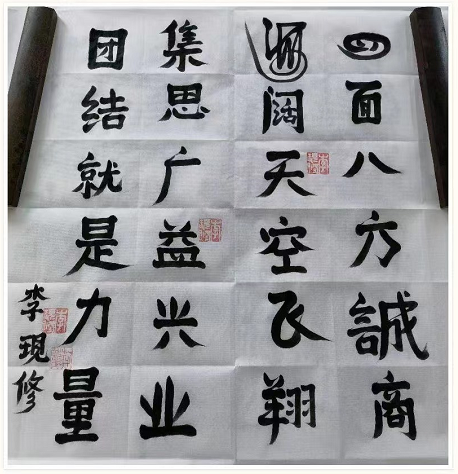 四面八方誠商
阔天空飞翔
集思广益兴业
团结就是力量
李現修